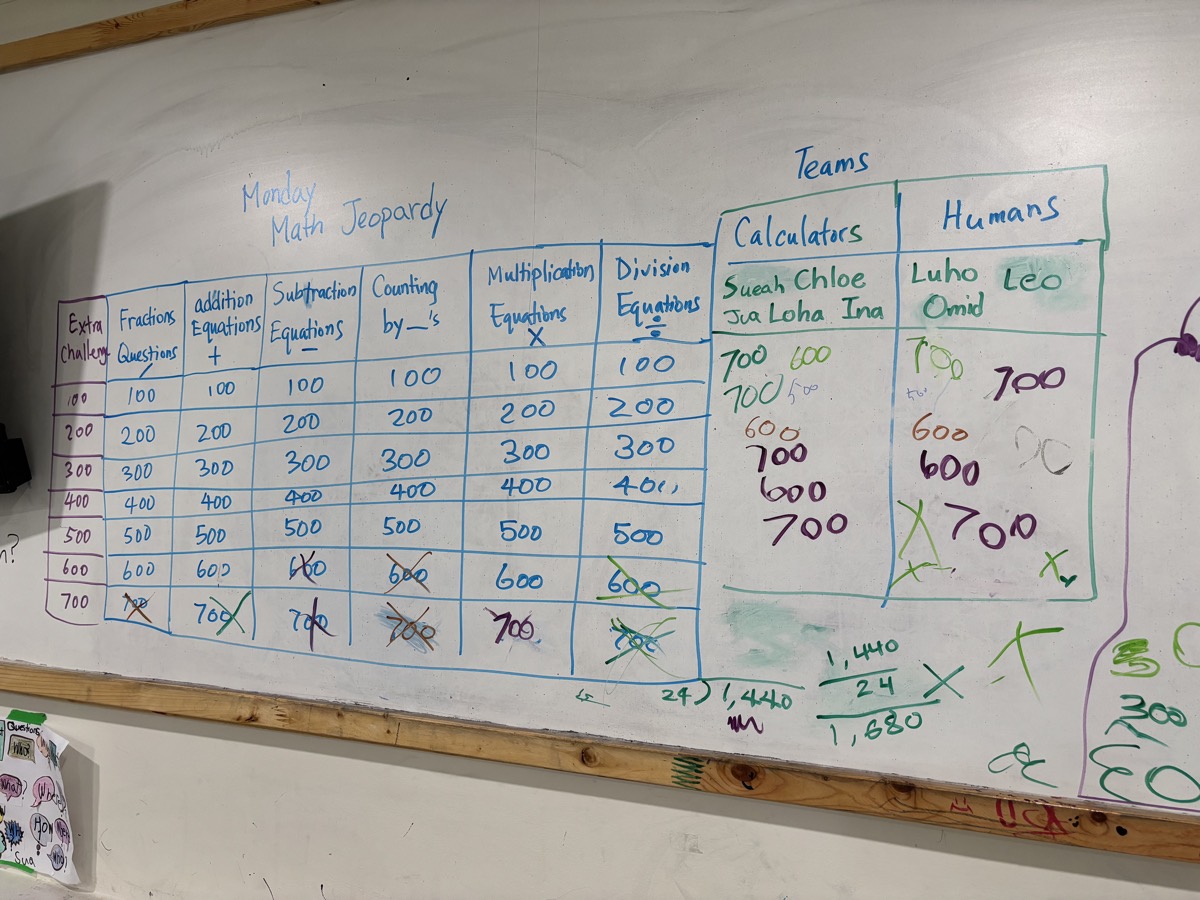 Monday
Math Jeopardy
Teams
Extra
Challeng
Fractions
Questions
addition
Equations
+
Subtraction
Equations
−
Counting
by __'s
Multiplication
Equations
X
Division
Equations
÷
Calculators
Humans
Sueah Chloe
Jua Loha Ina
Luho Leo
Omid
100 100 100 100 100 100 100
200 200 200 200 200 200 200
300 300 300 300 300 300 300
400 400 400 400 400 400
500 500 500 500 500 500 500
600 600 600 600 600 600 600
700 700 700 700 700 700 700
700 600
700 500
600
700
600
700
700
700
600
600
700
24)1,440
1,440
24
1,680
300
Questions
What
What
How
Sua